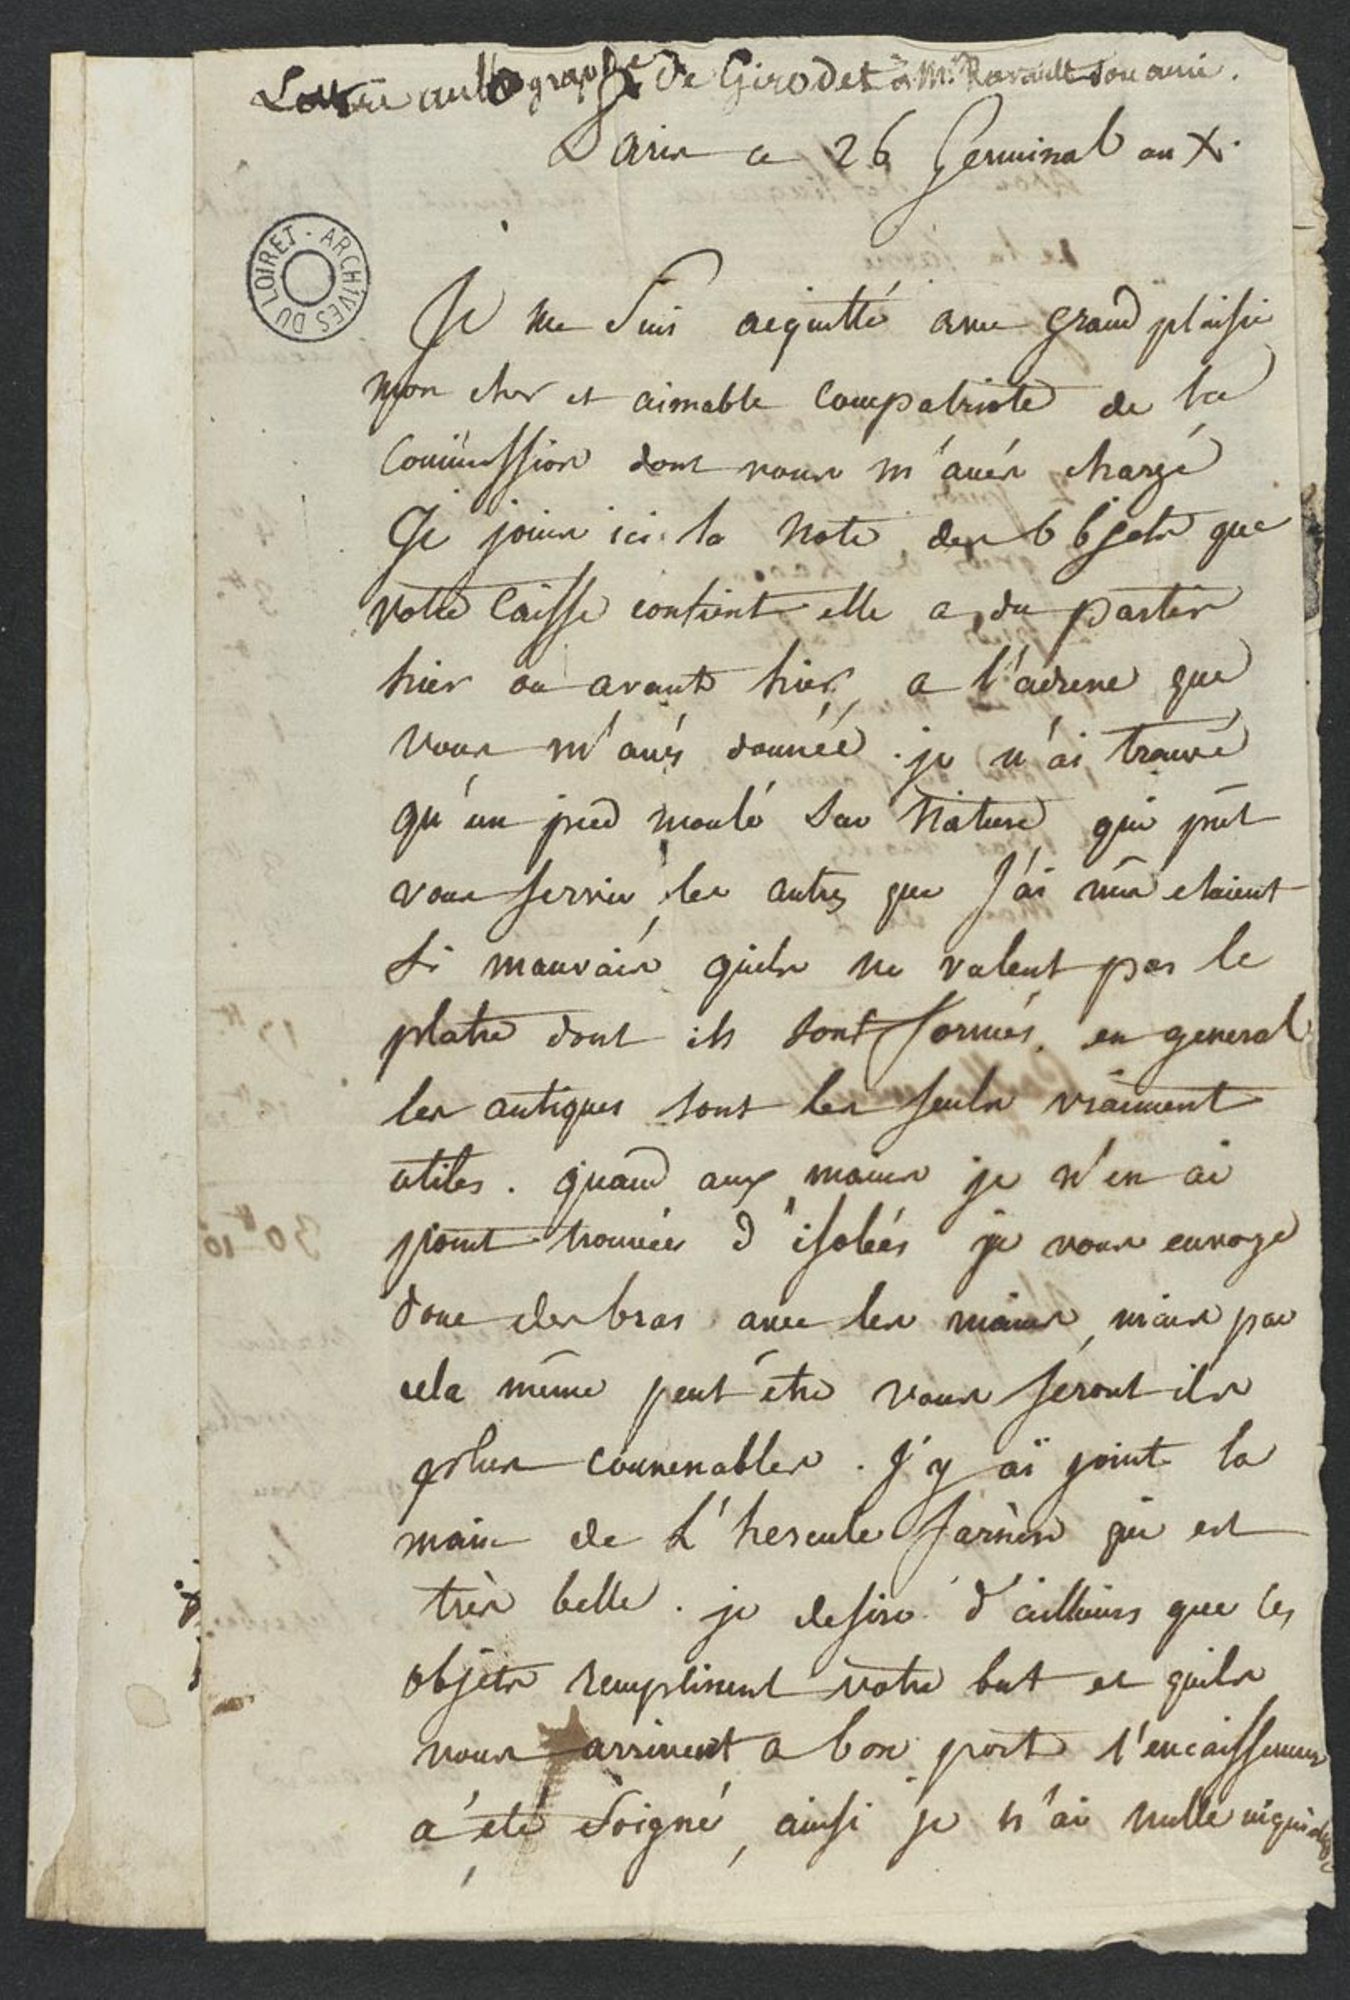 Lettre autographe de Girodet à Mr. Ravault son ami.
Paris ce 26 Germinal an X.
ARCHIVES DU LOIRET
Je me suis acquitté avec grand plaisir
mon cher et aimable compatriote de la
Commission dont vous m'avés chargé
Je joins ici la Note des Objets que
votre Caisse contient elle a du partir
hier ou avant hier, a l'adresse que
vous m'avés donnéé. je n'ai trouvé
qu'un pied moulé sur Nature qui pût
vous servir, les autres que J'ai vûs etaient
si mauvais quils ne valent pas le
platre dont ils sont formés. en general
les antiques sont les seuls vraiment
utiles. quand aux mains je n'en ai
point trouvées d'isoléés je vous envoye
donc des bras avec les mains, mais par
cela même peut être vous séront ils
plus convenables. J'y ai joint la
main de L'hercule farnèse qui est
très belle. je desire d'ailleurs que ces
objets remplissent votre but et quils
vous arrivent a bon port l'encaissement
a été soigné, ainsi je n'ai nulle inquiétude